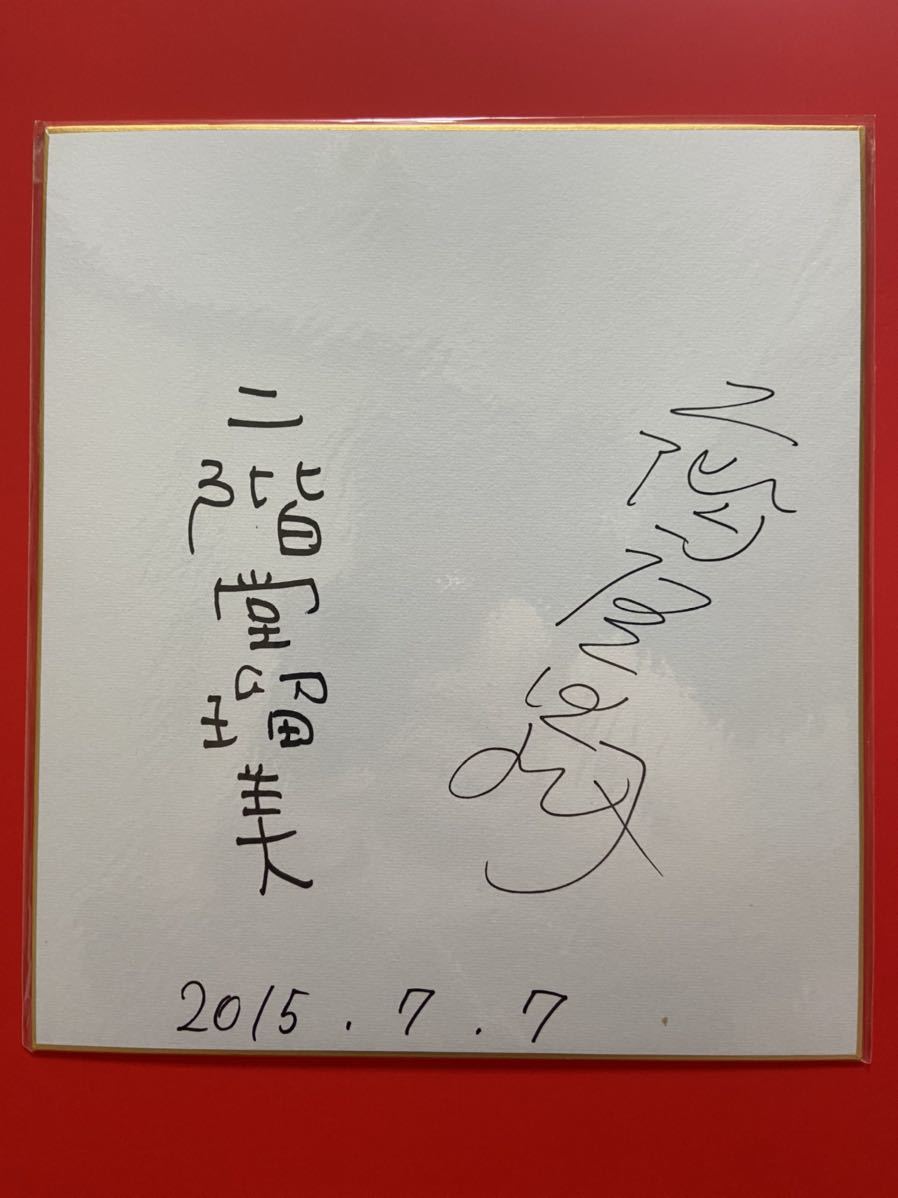 二階堂瑠美
2015.7.7